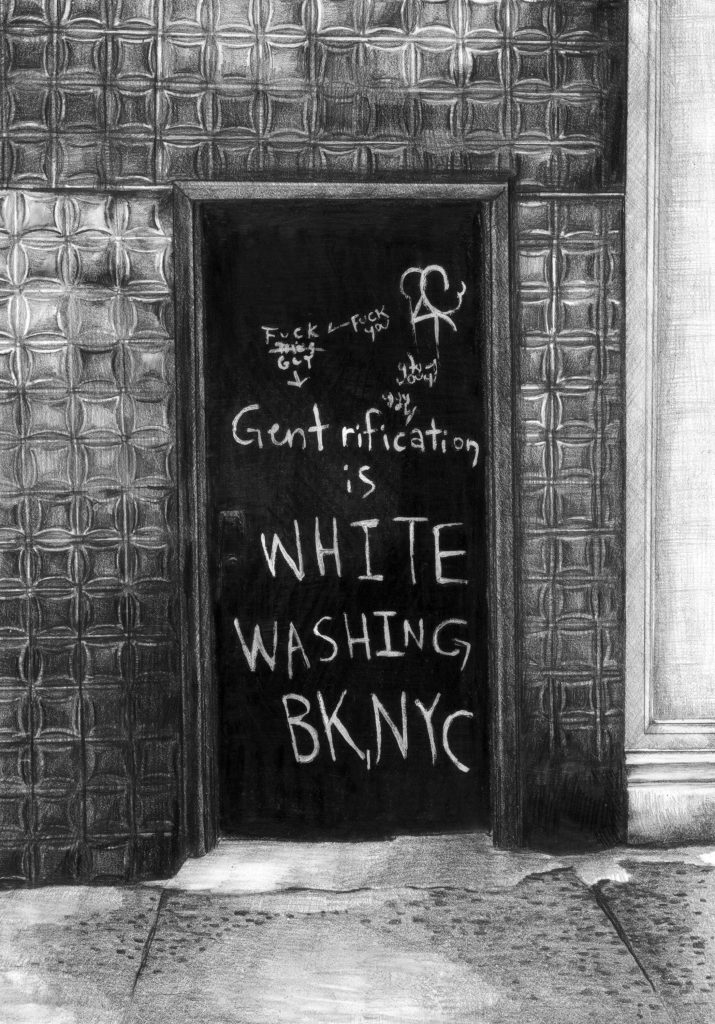 FUCK
THIS
GUY
FUCK
YOU
Gentrification
is
WHITE
WASHING
BK, NYC